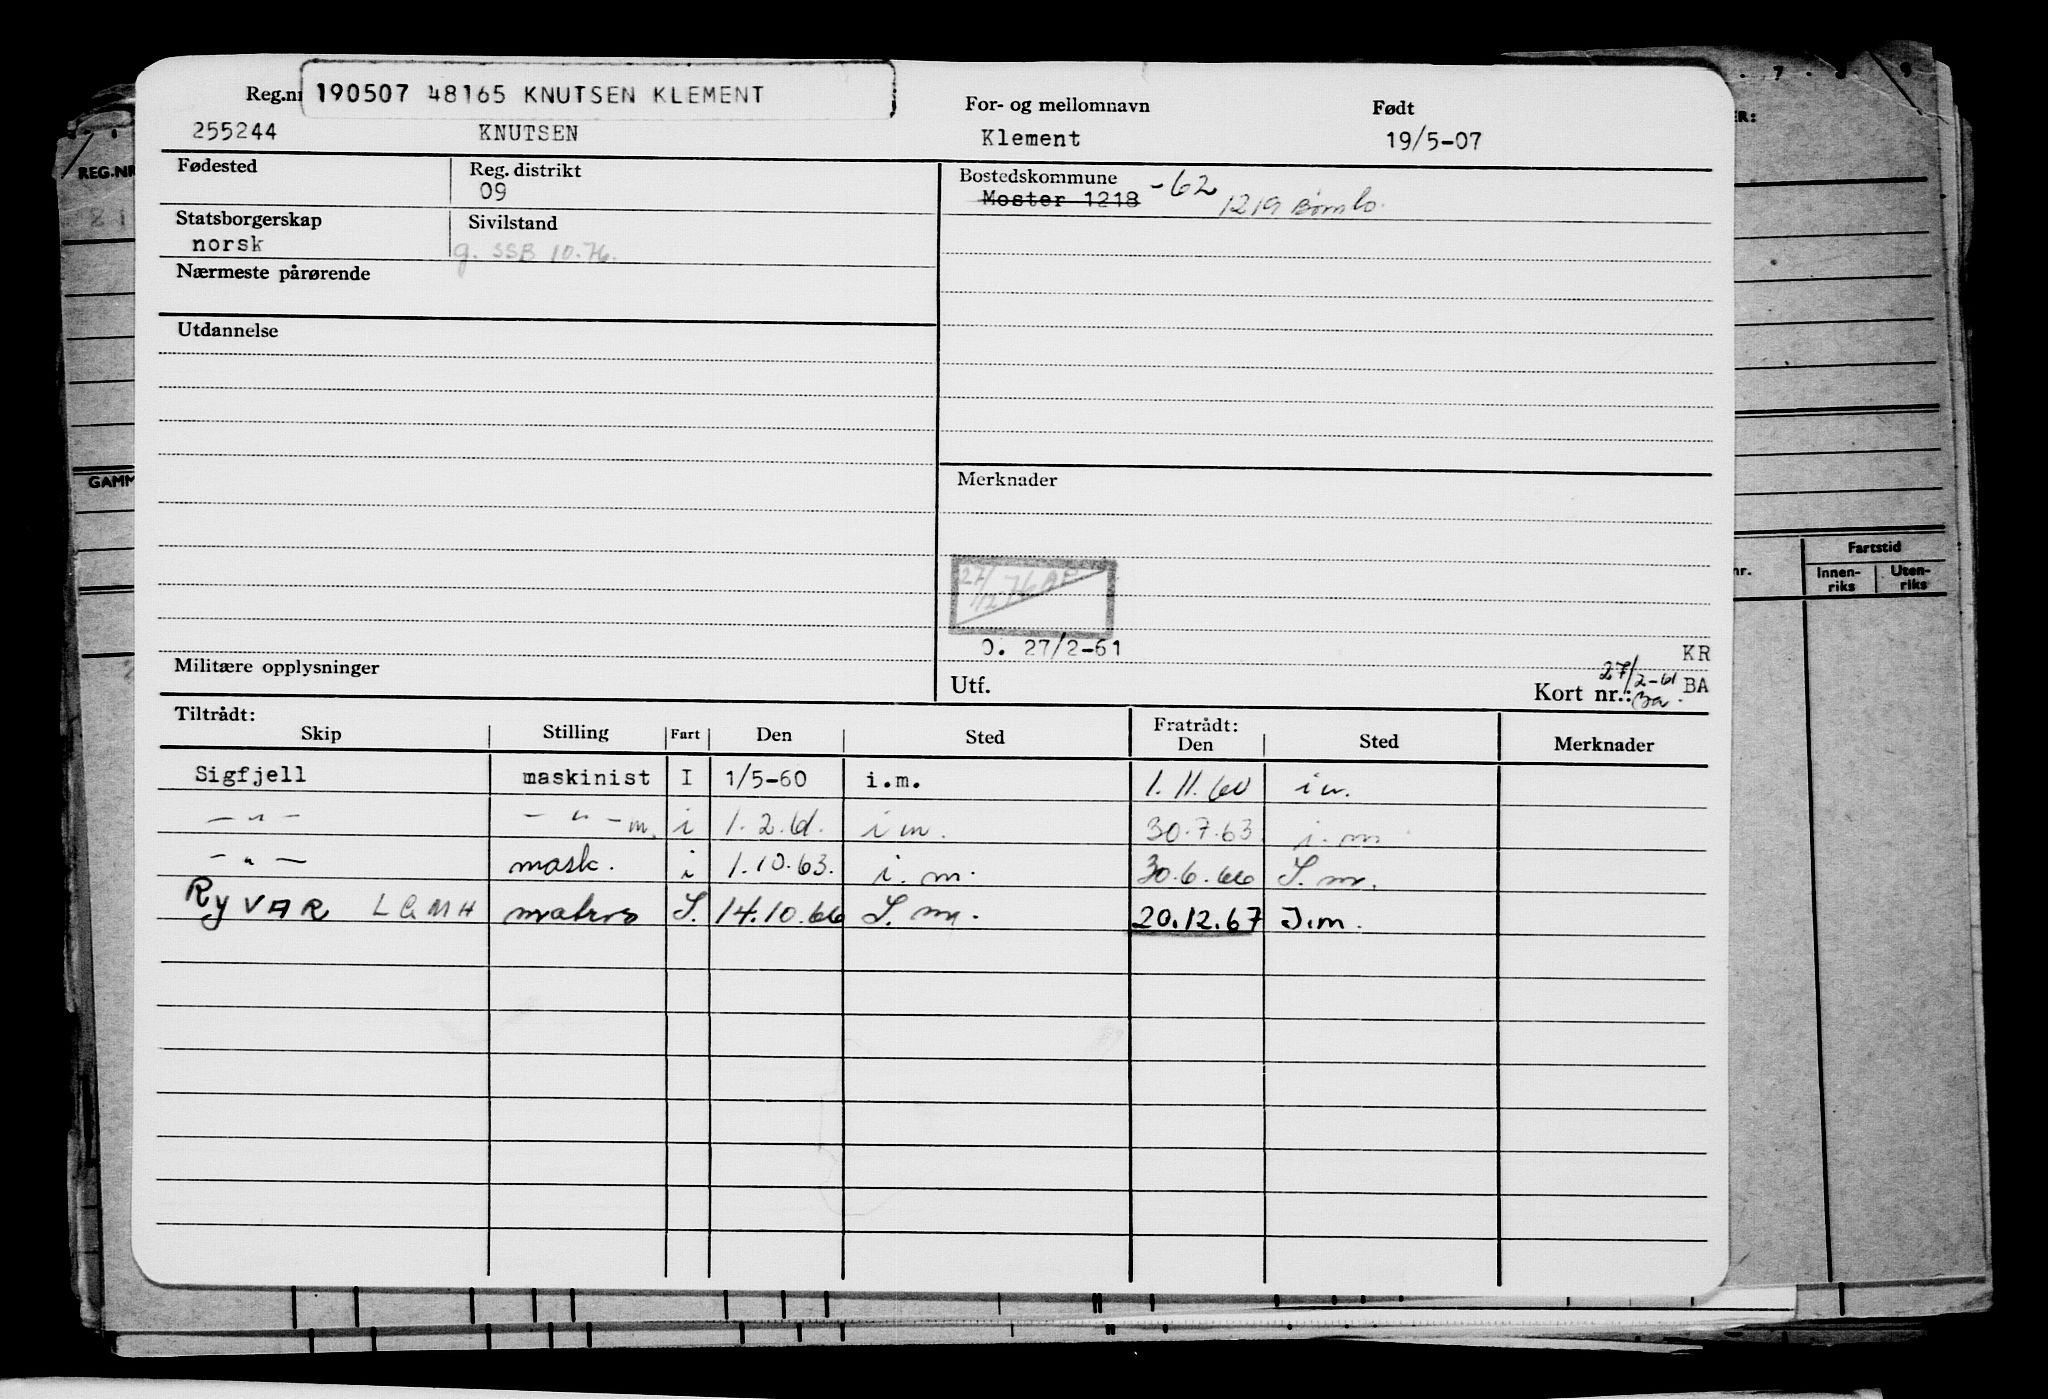 Reg.nr 190507 48165 KNUTSEN KLEMENT For- og mellomnavn Født
255244 KNUTSEN Klement 19/5-07
Fødested Reg. distrikt Bostedskommune
09 Moster 1218 -62 1219 Bømlo.
Statsborgerskap Sivilstand
norsk g. SSB 10.76.
Nærmeste pårørende
Utdannelse
Merknader
27/12-76
O. 27/2-61 KR
Militære opplysninger Utf. Kort nr.: 27/2-61 Ba. BA
Tiltrådt: Fratrådt:
Skip Stilling Fart Den Sted Den Sted Merknader
Sigfjell maskinist I 1/5-60 i.m. 1.11.60 i m.
— " — — " — m. i 1.2.61. i m. 30.7.63 i. m
— " — mask. i 1.10.63. i. m. 30.6.66 S. m.
RyVAR LGMH matros S. 14.10.66 S. m. 20.12.67 I.m.
REG.NR
GAMM
7 8 9
ER:
nr.
Fartstid
Innen-riks Uten-riks